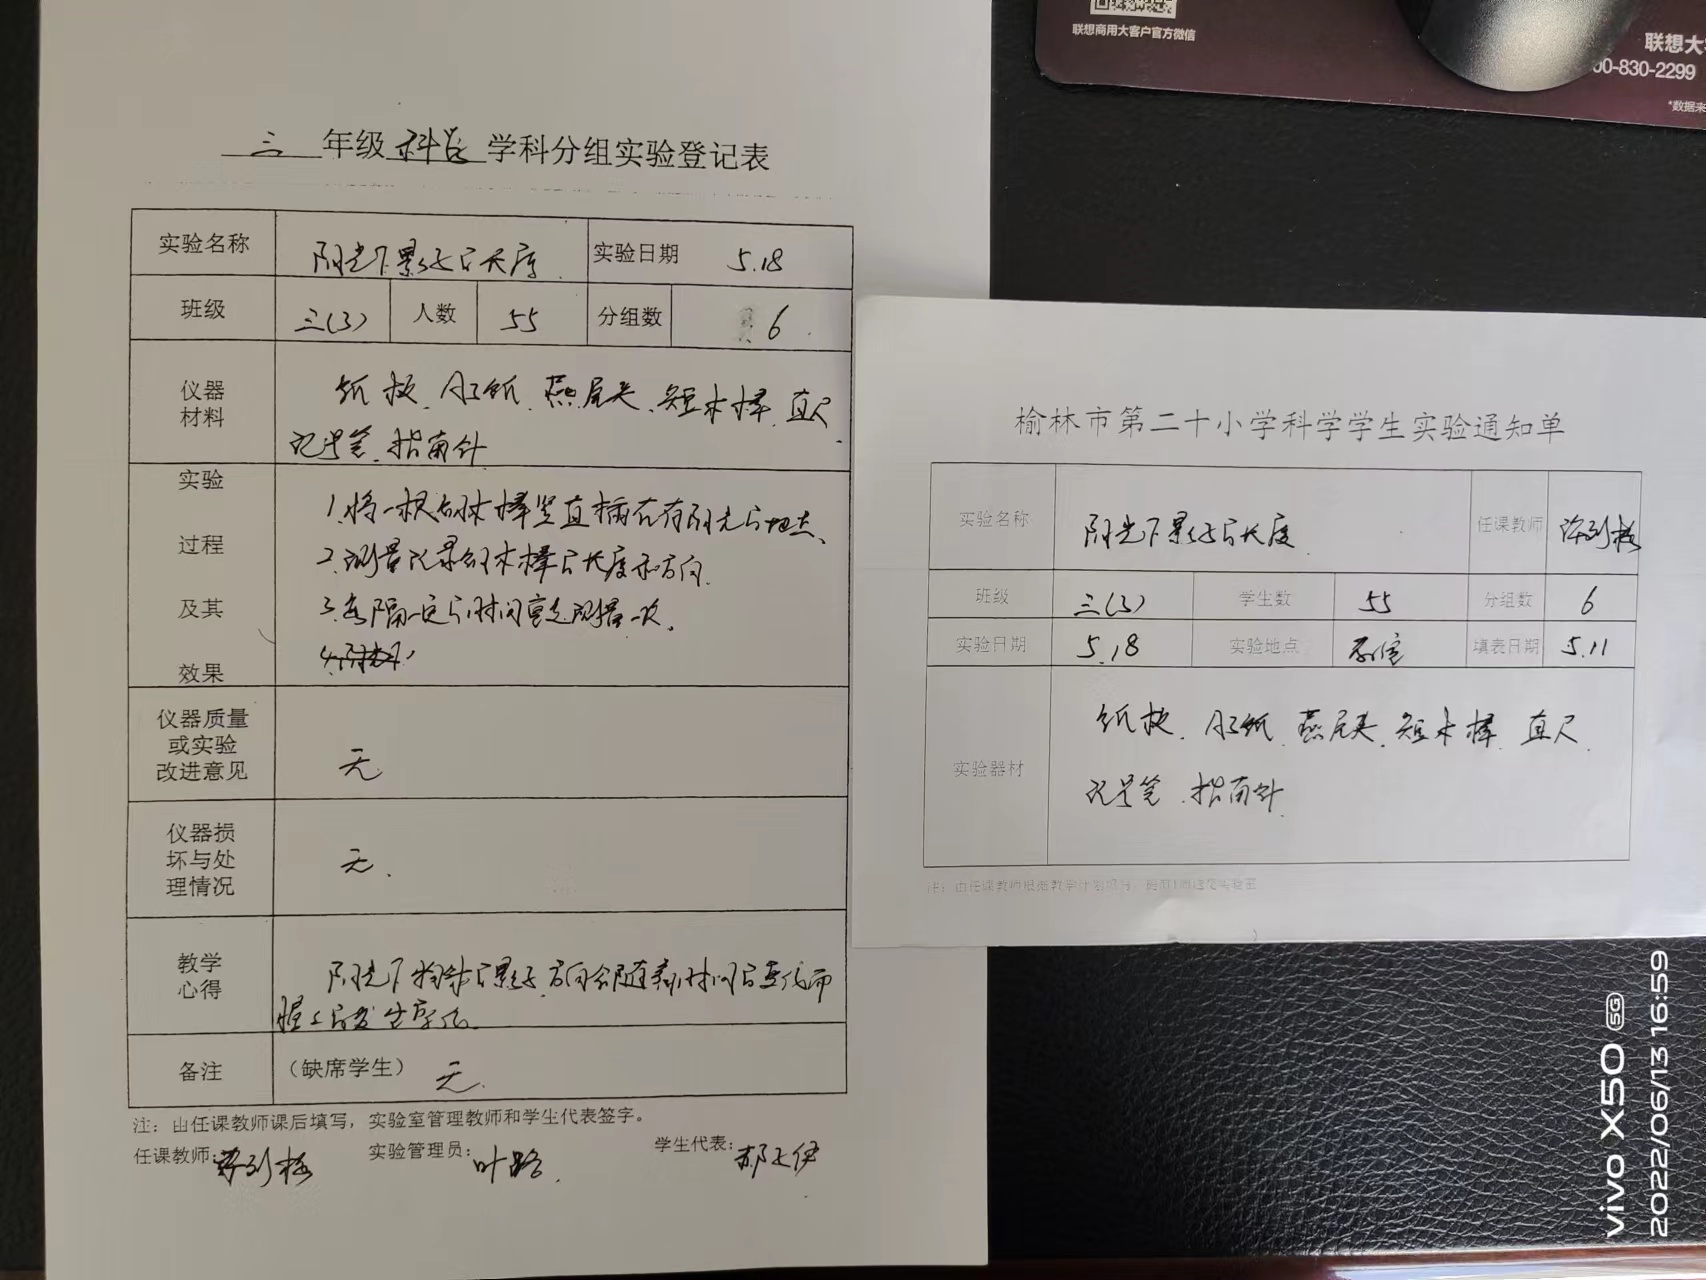 联想商用大客户官方微信
联想大
00-830-2299
*数据来
三 年级 科学 学科分组实验登记表
实验名称 阳光下影子的长度 实验日期 5.18
班级 三(3) 人数 55 分组数 6
仪器
材料
纸板、白纸、燕尾夹、短木棒、直尺、
记号笔、指南针
实验
过程
及其
效果
1.将一根的木棒竖直插在有阳光的地点、
2.测量记录的木棒的长度和方向.
3.每隔一定的时间重复测量一次、
仪器质量
或实验
改进意见
无
仪器损
坏与处
理情况
无.
教学
心得
阳光下物体的影子,方向会随着时间的变化而
慢慢的发生变化.
备注 (缺席学生) 无.
注：由任课教师课后填写，实验室管理教师和学生代表签字。
任课教师: 实验管理员: 学生代表:
榆林市第二十小学科学学生实验通知单
实验名称 阳光下影子的长度. 任课教师
班级 三(3) 学生数 55 分组数 6
实验日期 5.18 实验地点 填表日期 5.11
实验器材
纸板、白纸、燕尾夹、短木棒、直尺、
记号笔、指南针.
注：由任课教师根据教学计划填写，提前1周送交实验室
vivo X50 5G
2022/06/13 16:59